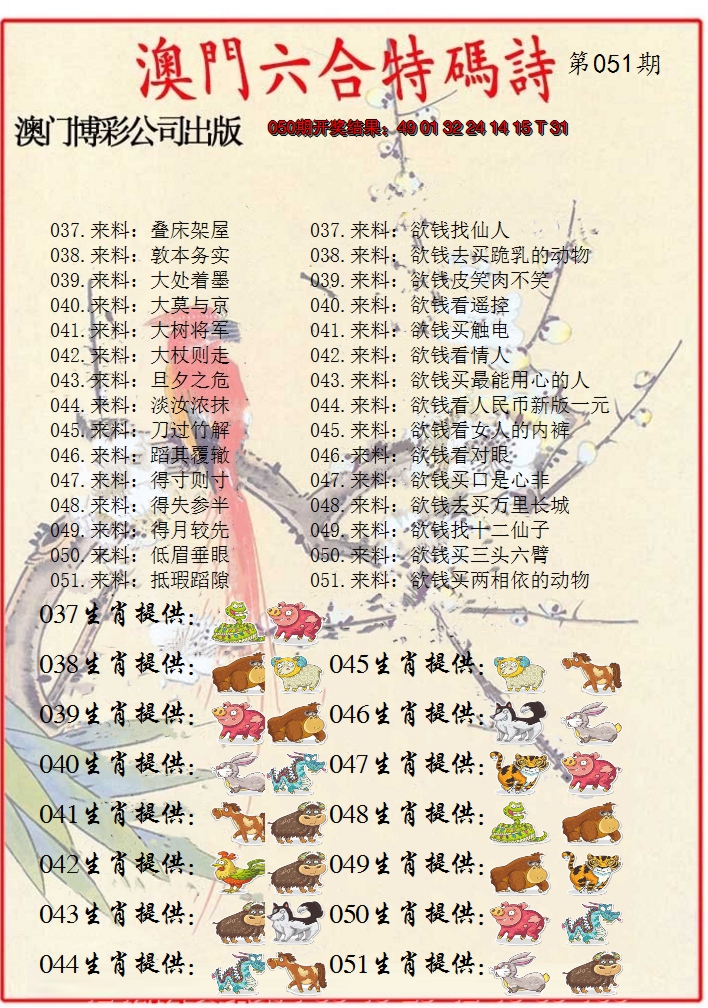 澳門六合特碼詩 第051期
澳门博彩公司出版 050期开奖结果：49 01 32 24 14 15 T 31
037.来料：叠床架屋 037.来料：欲钱找仙人
038.来料：敦本务实 038.来料：欲钱去买跪乳的动物
039.来料：大处着墨 039.来料：欲钱皮笑肉不笑
040.来料：大莫与京 040.来料：欲钱看遥控
041.来料：大树将军 041.来料：欲钱买触电
042.来料：大杖则走 042.来料：欲钱看情人
043.来料：旦夕之危 043.来料：欲钱买最能用心的人
044.来料：淡妆浓抹 044.来料：欲钱看人民币新版一元
045.来料：刀过竹解 045.来料：欲钱看女人的内裤
046.来料：蹈其覆辙 046.来料：欲钱看对眼
047.来料：得寸则寸 047.来料：欲钱买口是心非
048.来料：得失参半 048.来料：欲钱去买万里长城
049.来料：得月较先 049.来料：欲钱找十二仙子
050.来料：低眉垂眼 050.来料：欲钱买三头六臂
051.来料：抵瑕蹈隙 051.来料：欲钱买两相依的动物
037生肖提供：
038生肖提供： 045生肖提供：
039生肖提供： 046生肖提供：
040生肖提供： 047生肖提供：
041生肖提供： 048生肖提供：
042生肖提供： 049生肖提供：
043生肖提供： 050生肖提供：
044生肖提供： 051生肖提供：